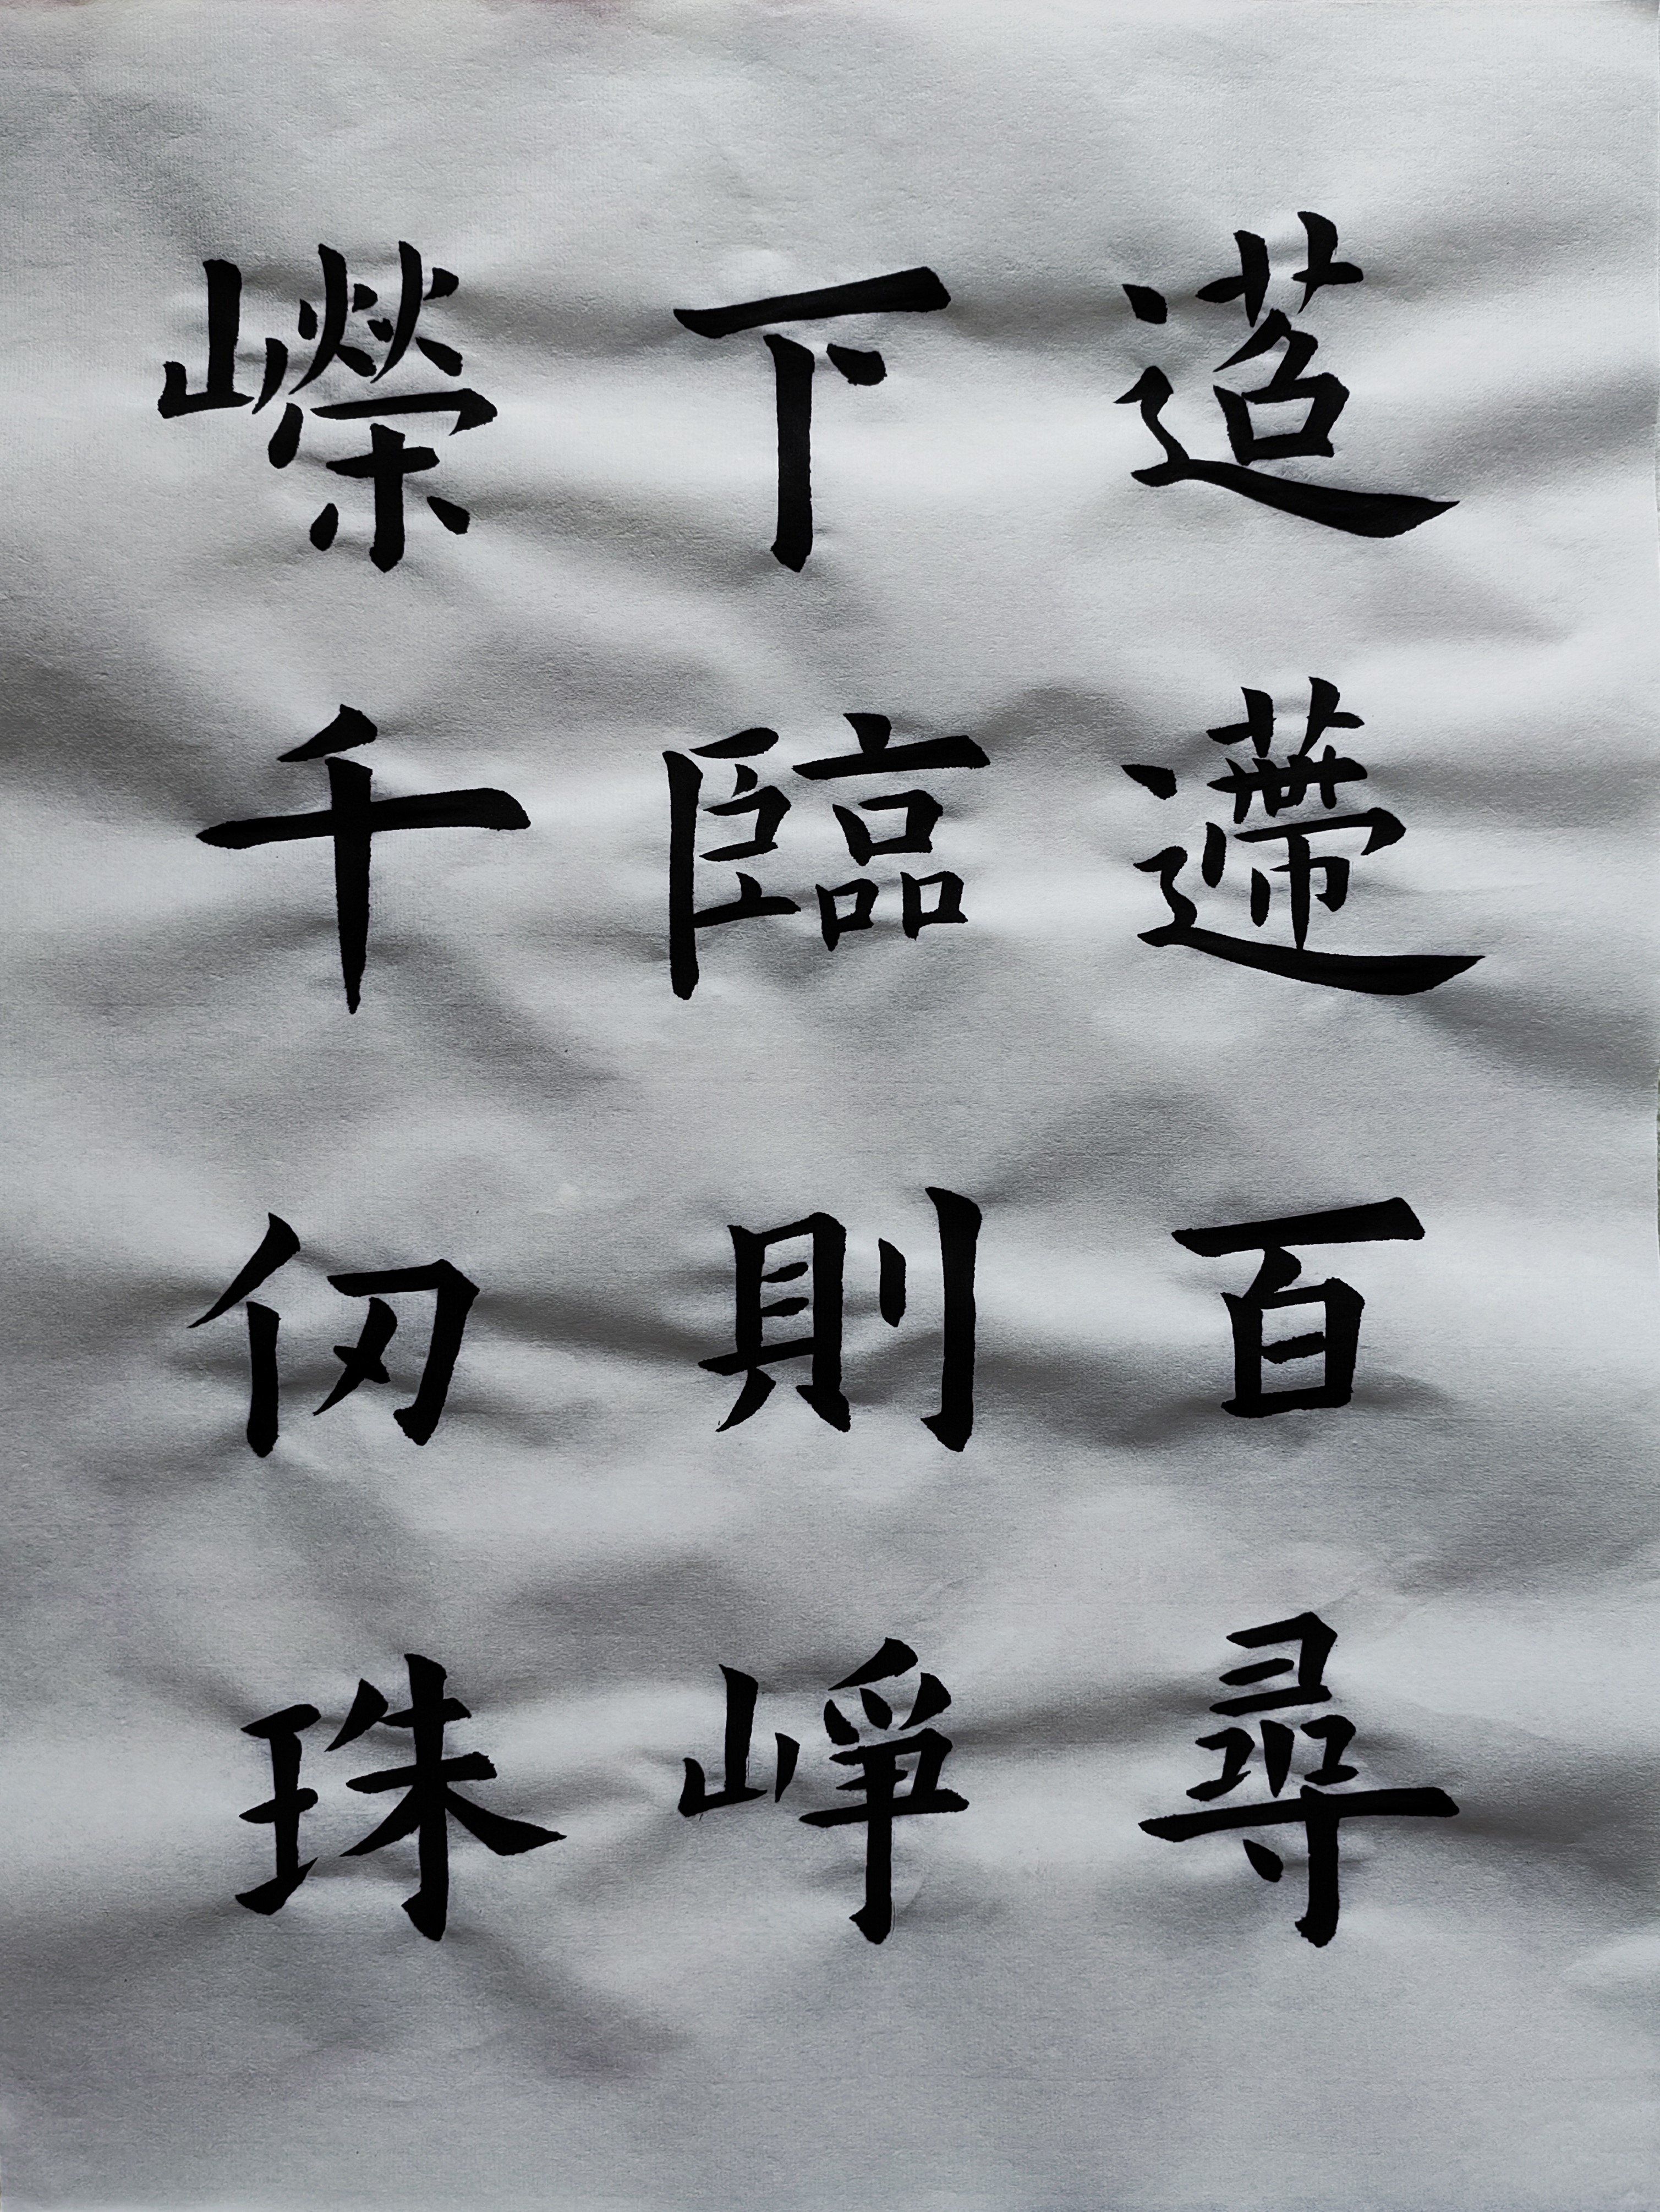 迢遰百尋
下臨則崢
嶸千仞珠